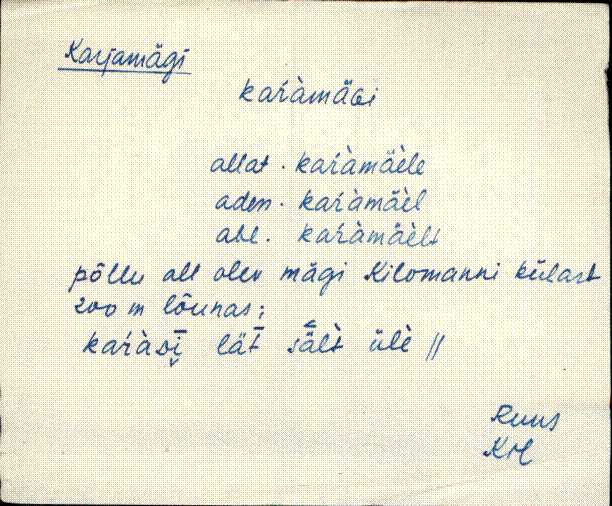 Karjamägi
kaŕàmäGi
allat. kaŕàmäèle
aden. kaŕàmäèl
abl. kaŕàmäèlt
põllu all olev mägi Kilomanni külast
200 m lõunas;
lät̄ sält ülè //
Ruus
KM